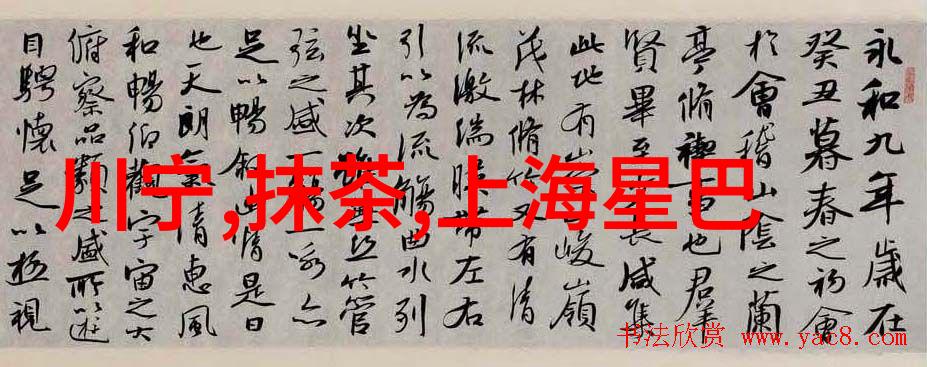 永和九年歲在
癸丑暮春之初會
於會稽山陰之蘭
亭脩禊事也羣
賢畢至長咸集
此地有峻嶺
茂林脩竹又有清
流激湍映帶左右
引以為流觴曲水列
坐其次雖無絲竹管
弦之盛一觴一詠亦
足以暢敘幽情是日
也天朗氣清惠風
和暢仰觀宇宙之大
俯察品類之盛所以遊
目騁懷足以極視
川宁,抹茶,上海星巴
书法欣赏 www.yac8.com